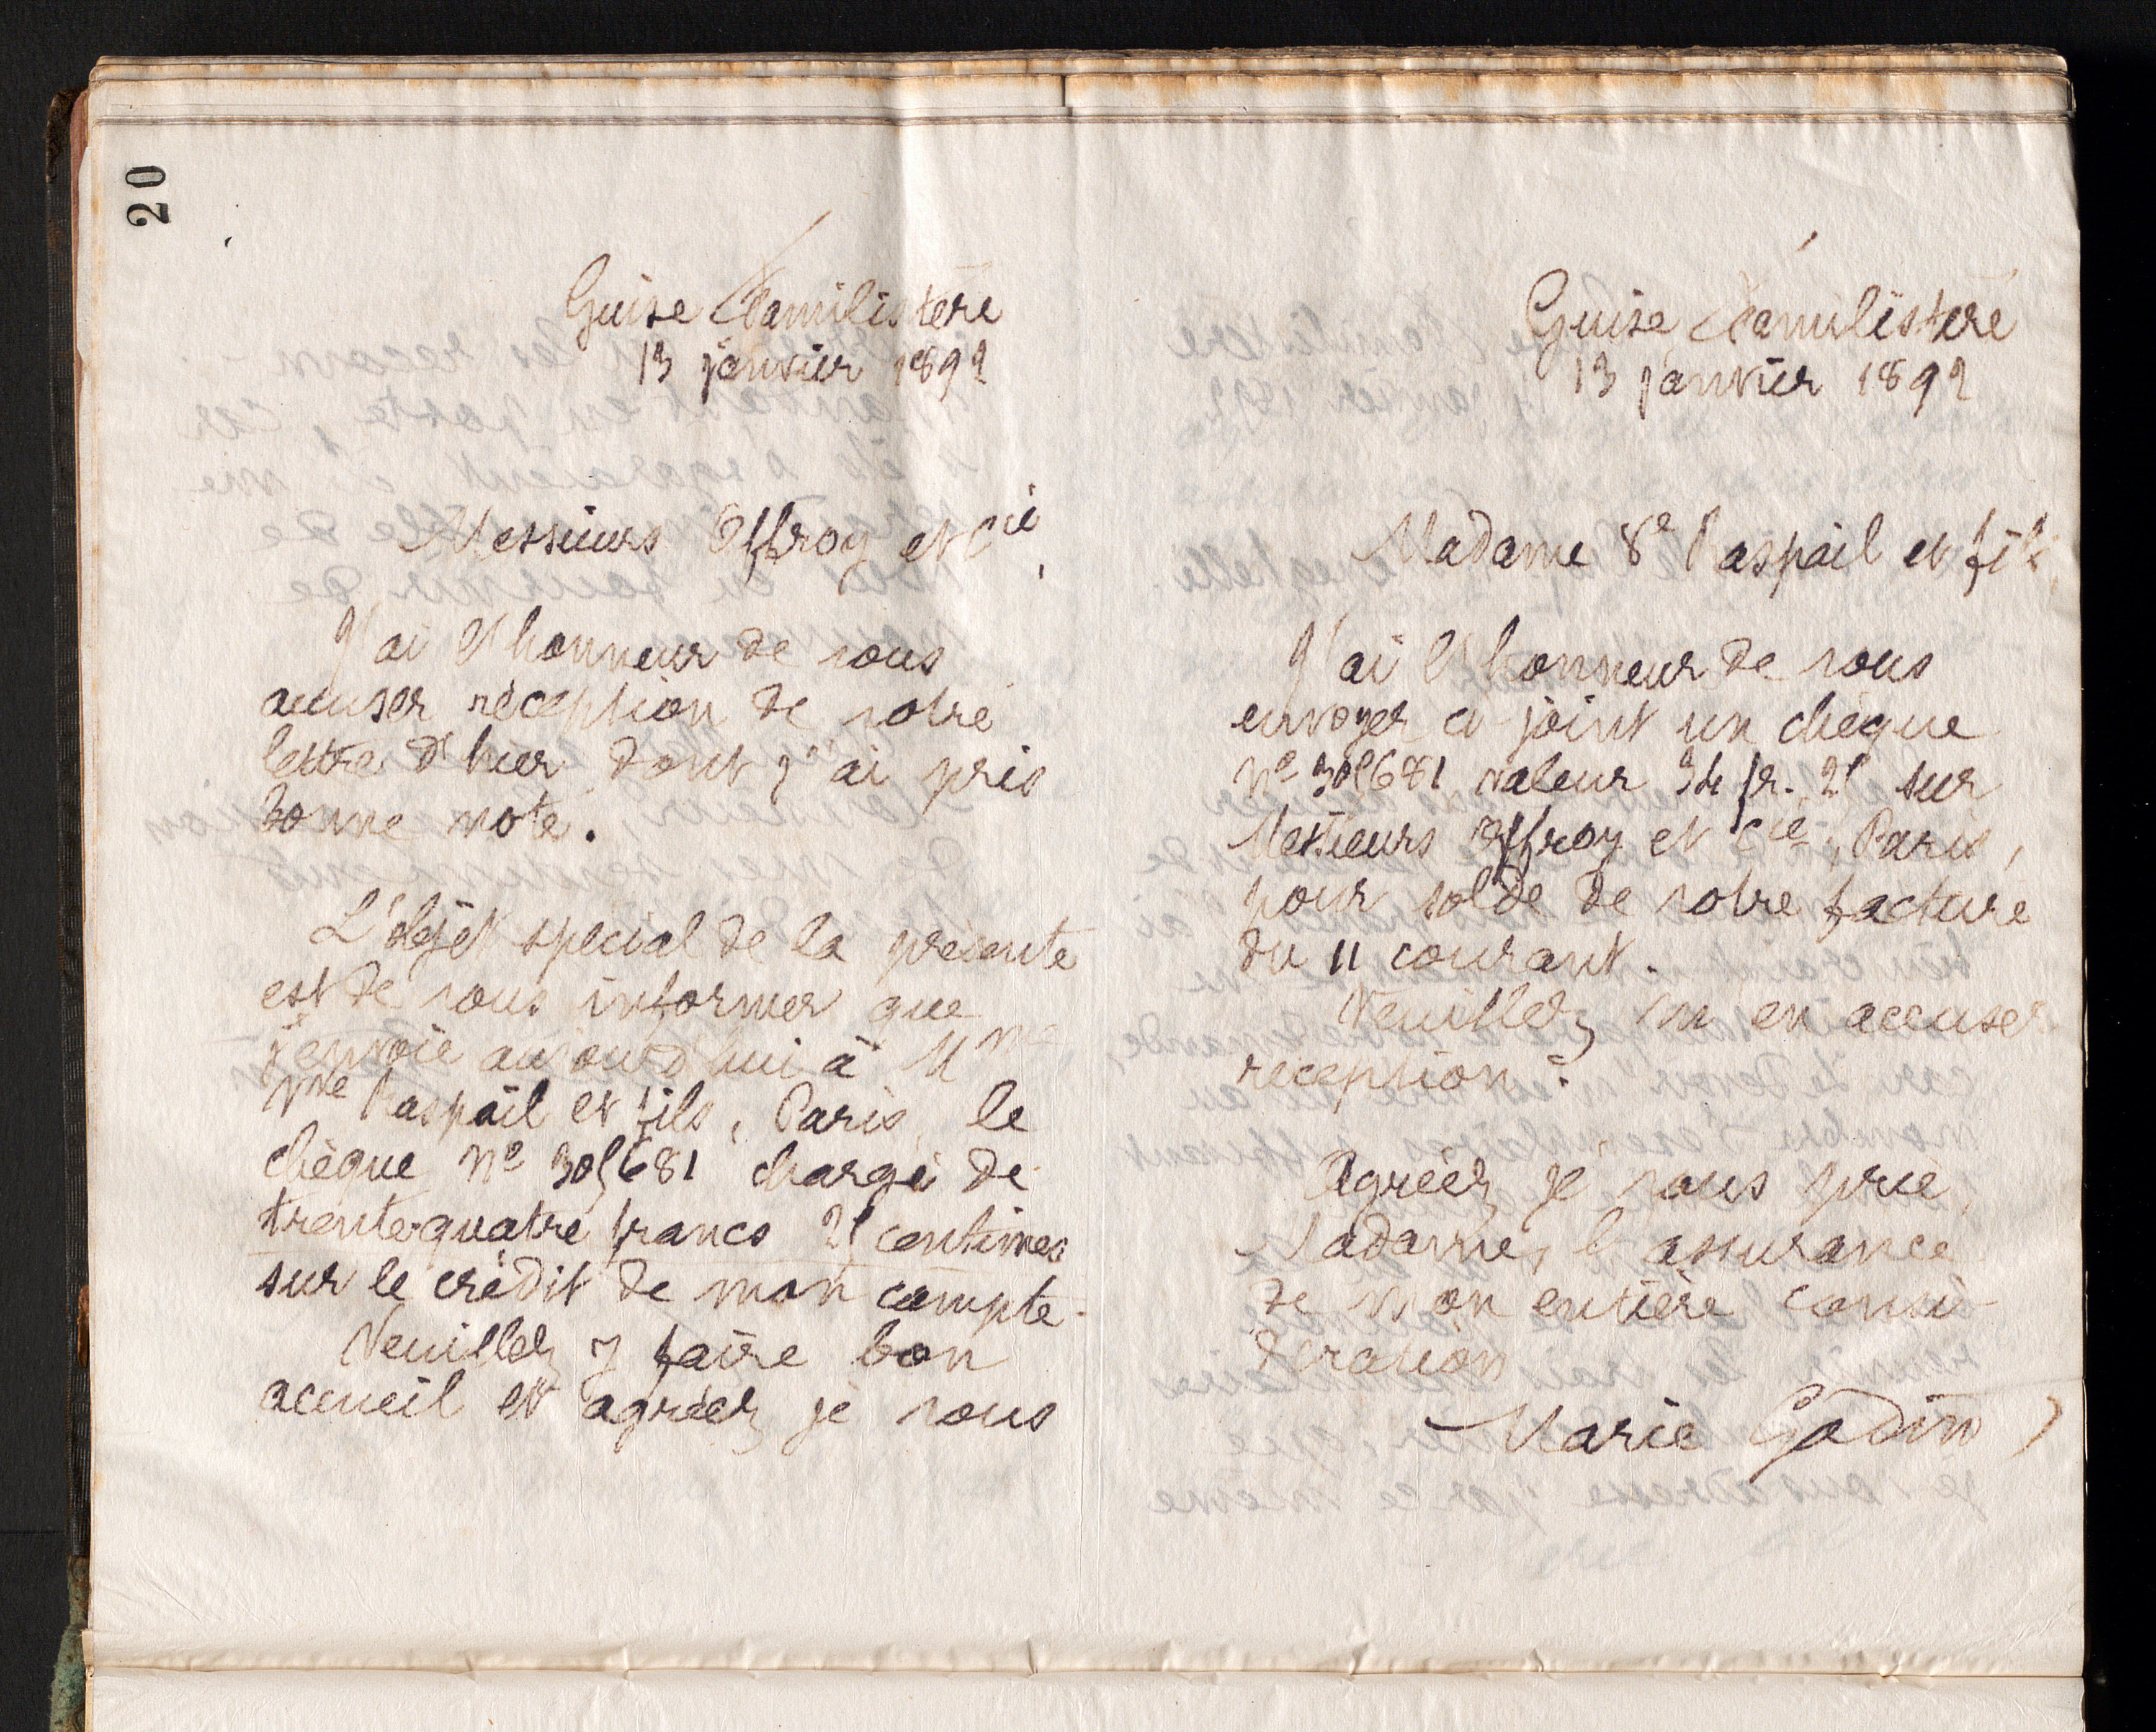 20
Guise Familistère
13 janvier 1892
Messieurs Offroy et Cie,
J'ai l'honneur de vous
accuser réception de votre
lettre d'hier dont j'ai pris
bonne note.
L'objet spécial de la présente
est de vous informer que
j'envoie aujourd'hui à Mme
Vve Raspail et fils, Paris, le
chèque No 305681 chargé de
trente-quatre francs 25 centimes
sur le crédit de mon compte.
Veuillez y faire bon
accueil et agréez, je vous
Guise Familistère
13 janvier 1892
Madame Ve Raspail et fils,
J'ai l'honneur de vous
envoyer ci-joint un chèque
No 305681, valeur 34 fr. 25 sur
Messieurs Offroy et Cie, Paris,
pour solde de votre facture
du 11 courant.
Veuillez m'en accuser
réception.
Agréez, je vous prie,
Madame, l'assurance
de mon entière consi-
dération
Marie Godin